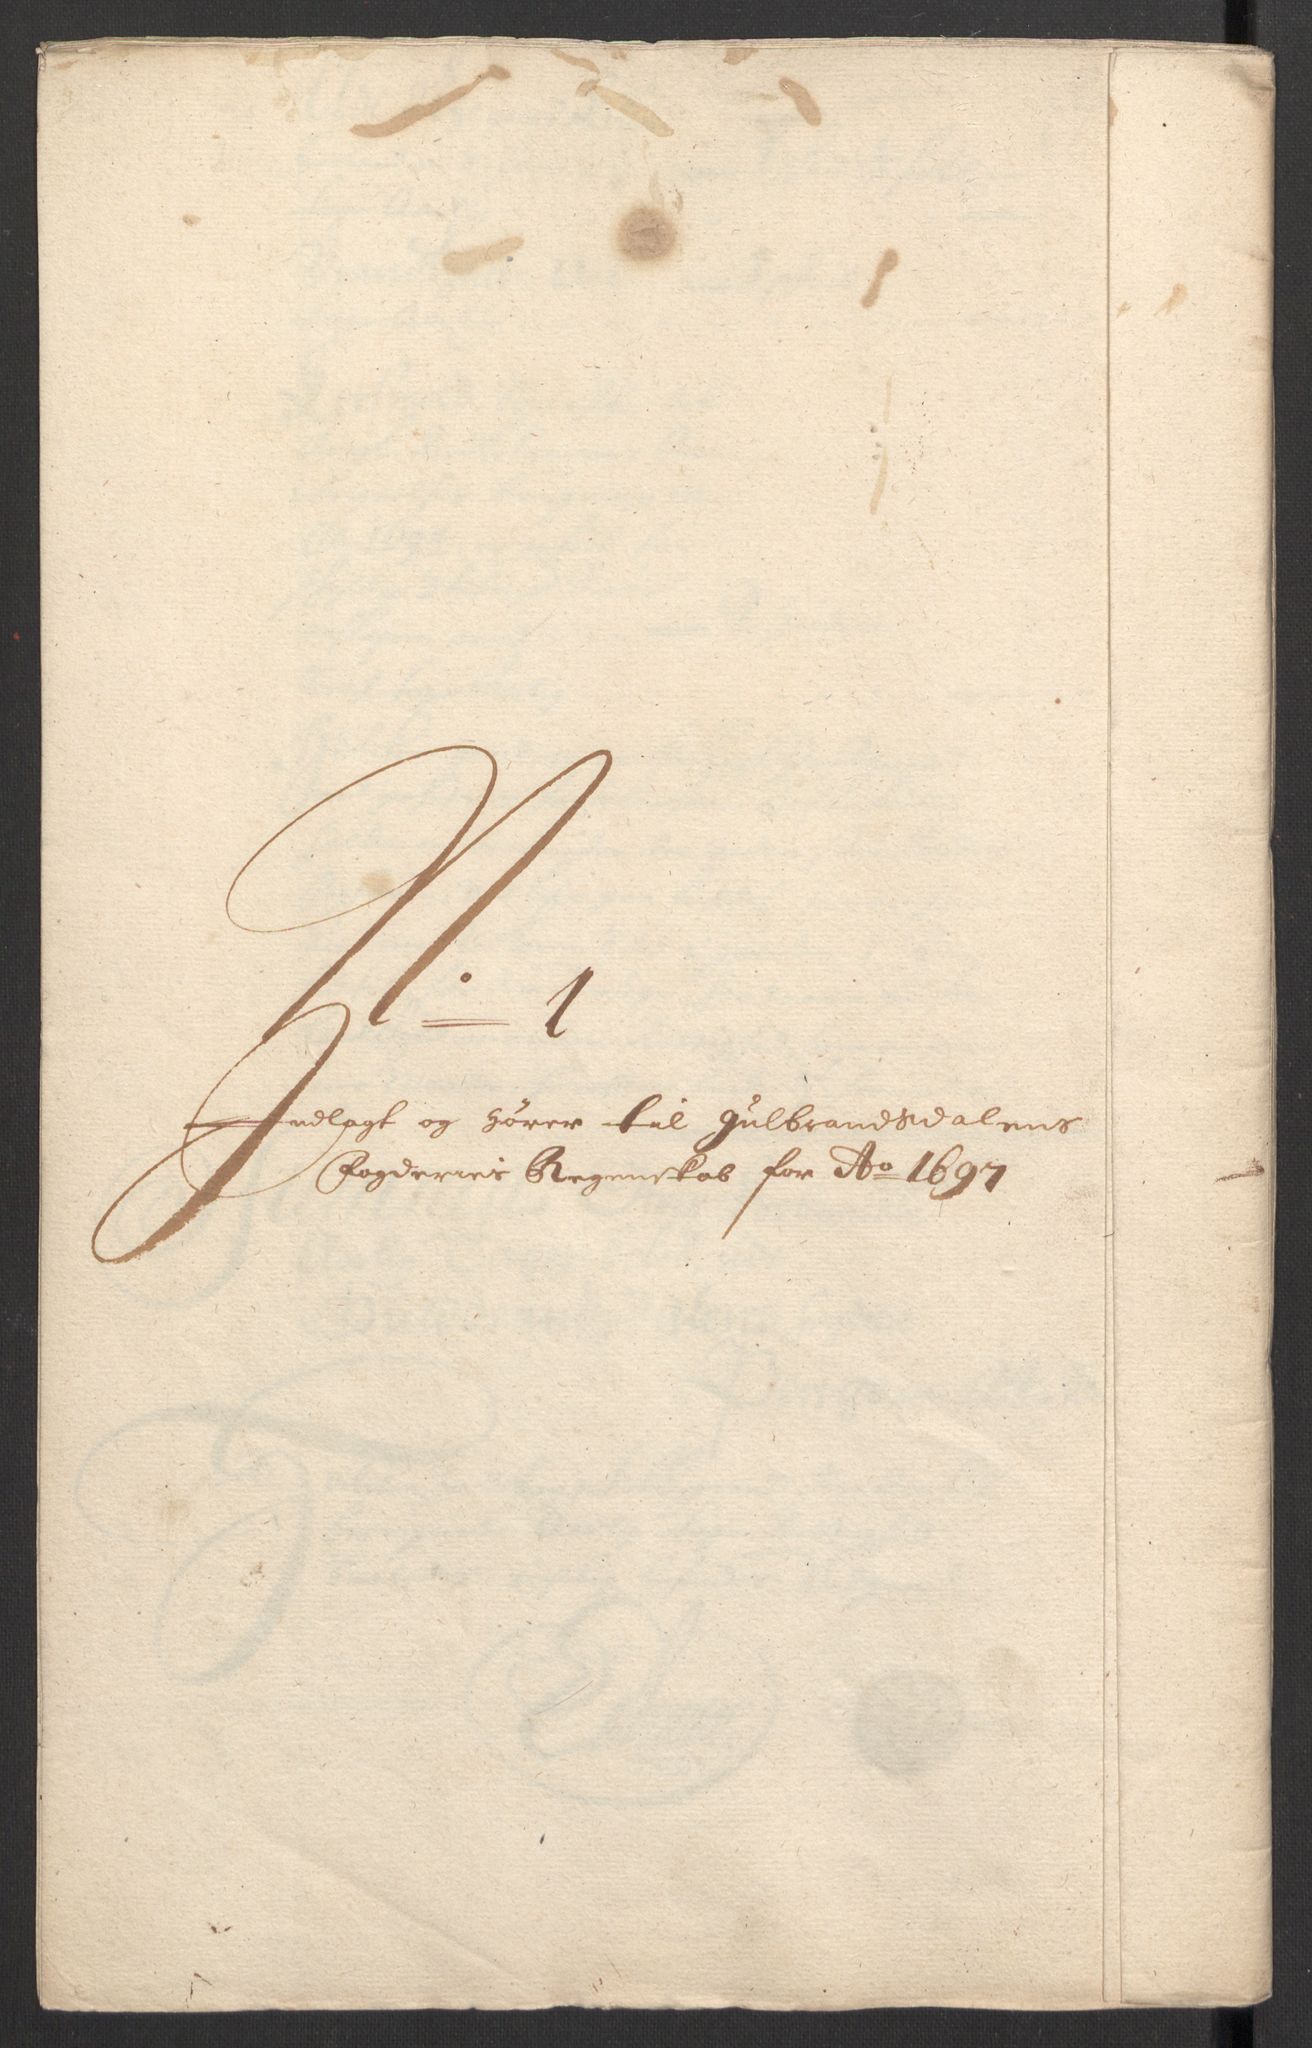 N.o 1
Indlagt og hører til Gulbrandsdalens
Fogderies Regenskab for Ao 1697